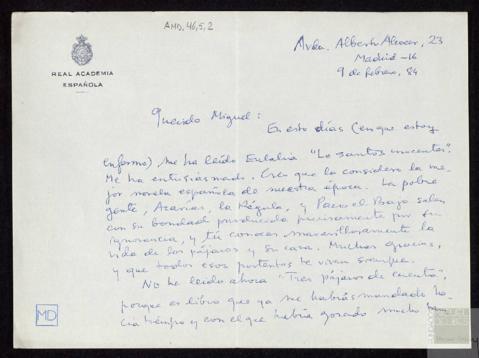 AMD, 46, 5, 2
REAL ACADEMIA
ESPAÑOLA
Avda. Alberto Alcocer, 23
Madrid-16
9 de febrero, 84
Querido Miguel:
En esto días (en que estoy
enfermo), me ha leído Eulalia "Lo santos inocentes".
Me ha entusiasmado. Creo que la considero la me-
jor novela española de nuestra época. La pobre
gente, Azarías, la Régula, y Paco el Bajo salen
con su bondad producida precisamente por su
ignorancia, y tú conoces maravillosamente la
vida de los pájaros y su caza. Muchas gracias,
y que todos esos portentos te vivan siempre.
No he leído ahora "Tres pájaros de cuenta",
porque es libro que ya me habías mandado ha-
cía tiempo y con el que había gozado mucho
MD